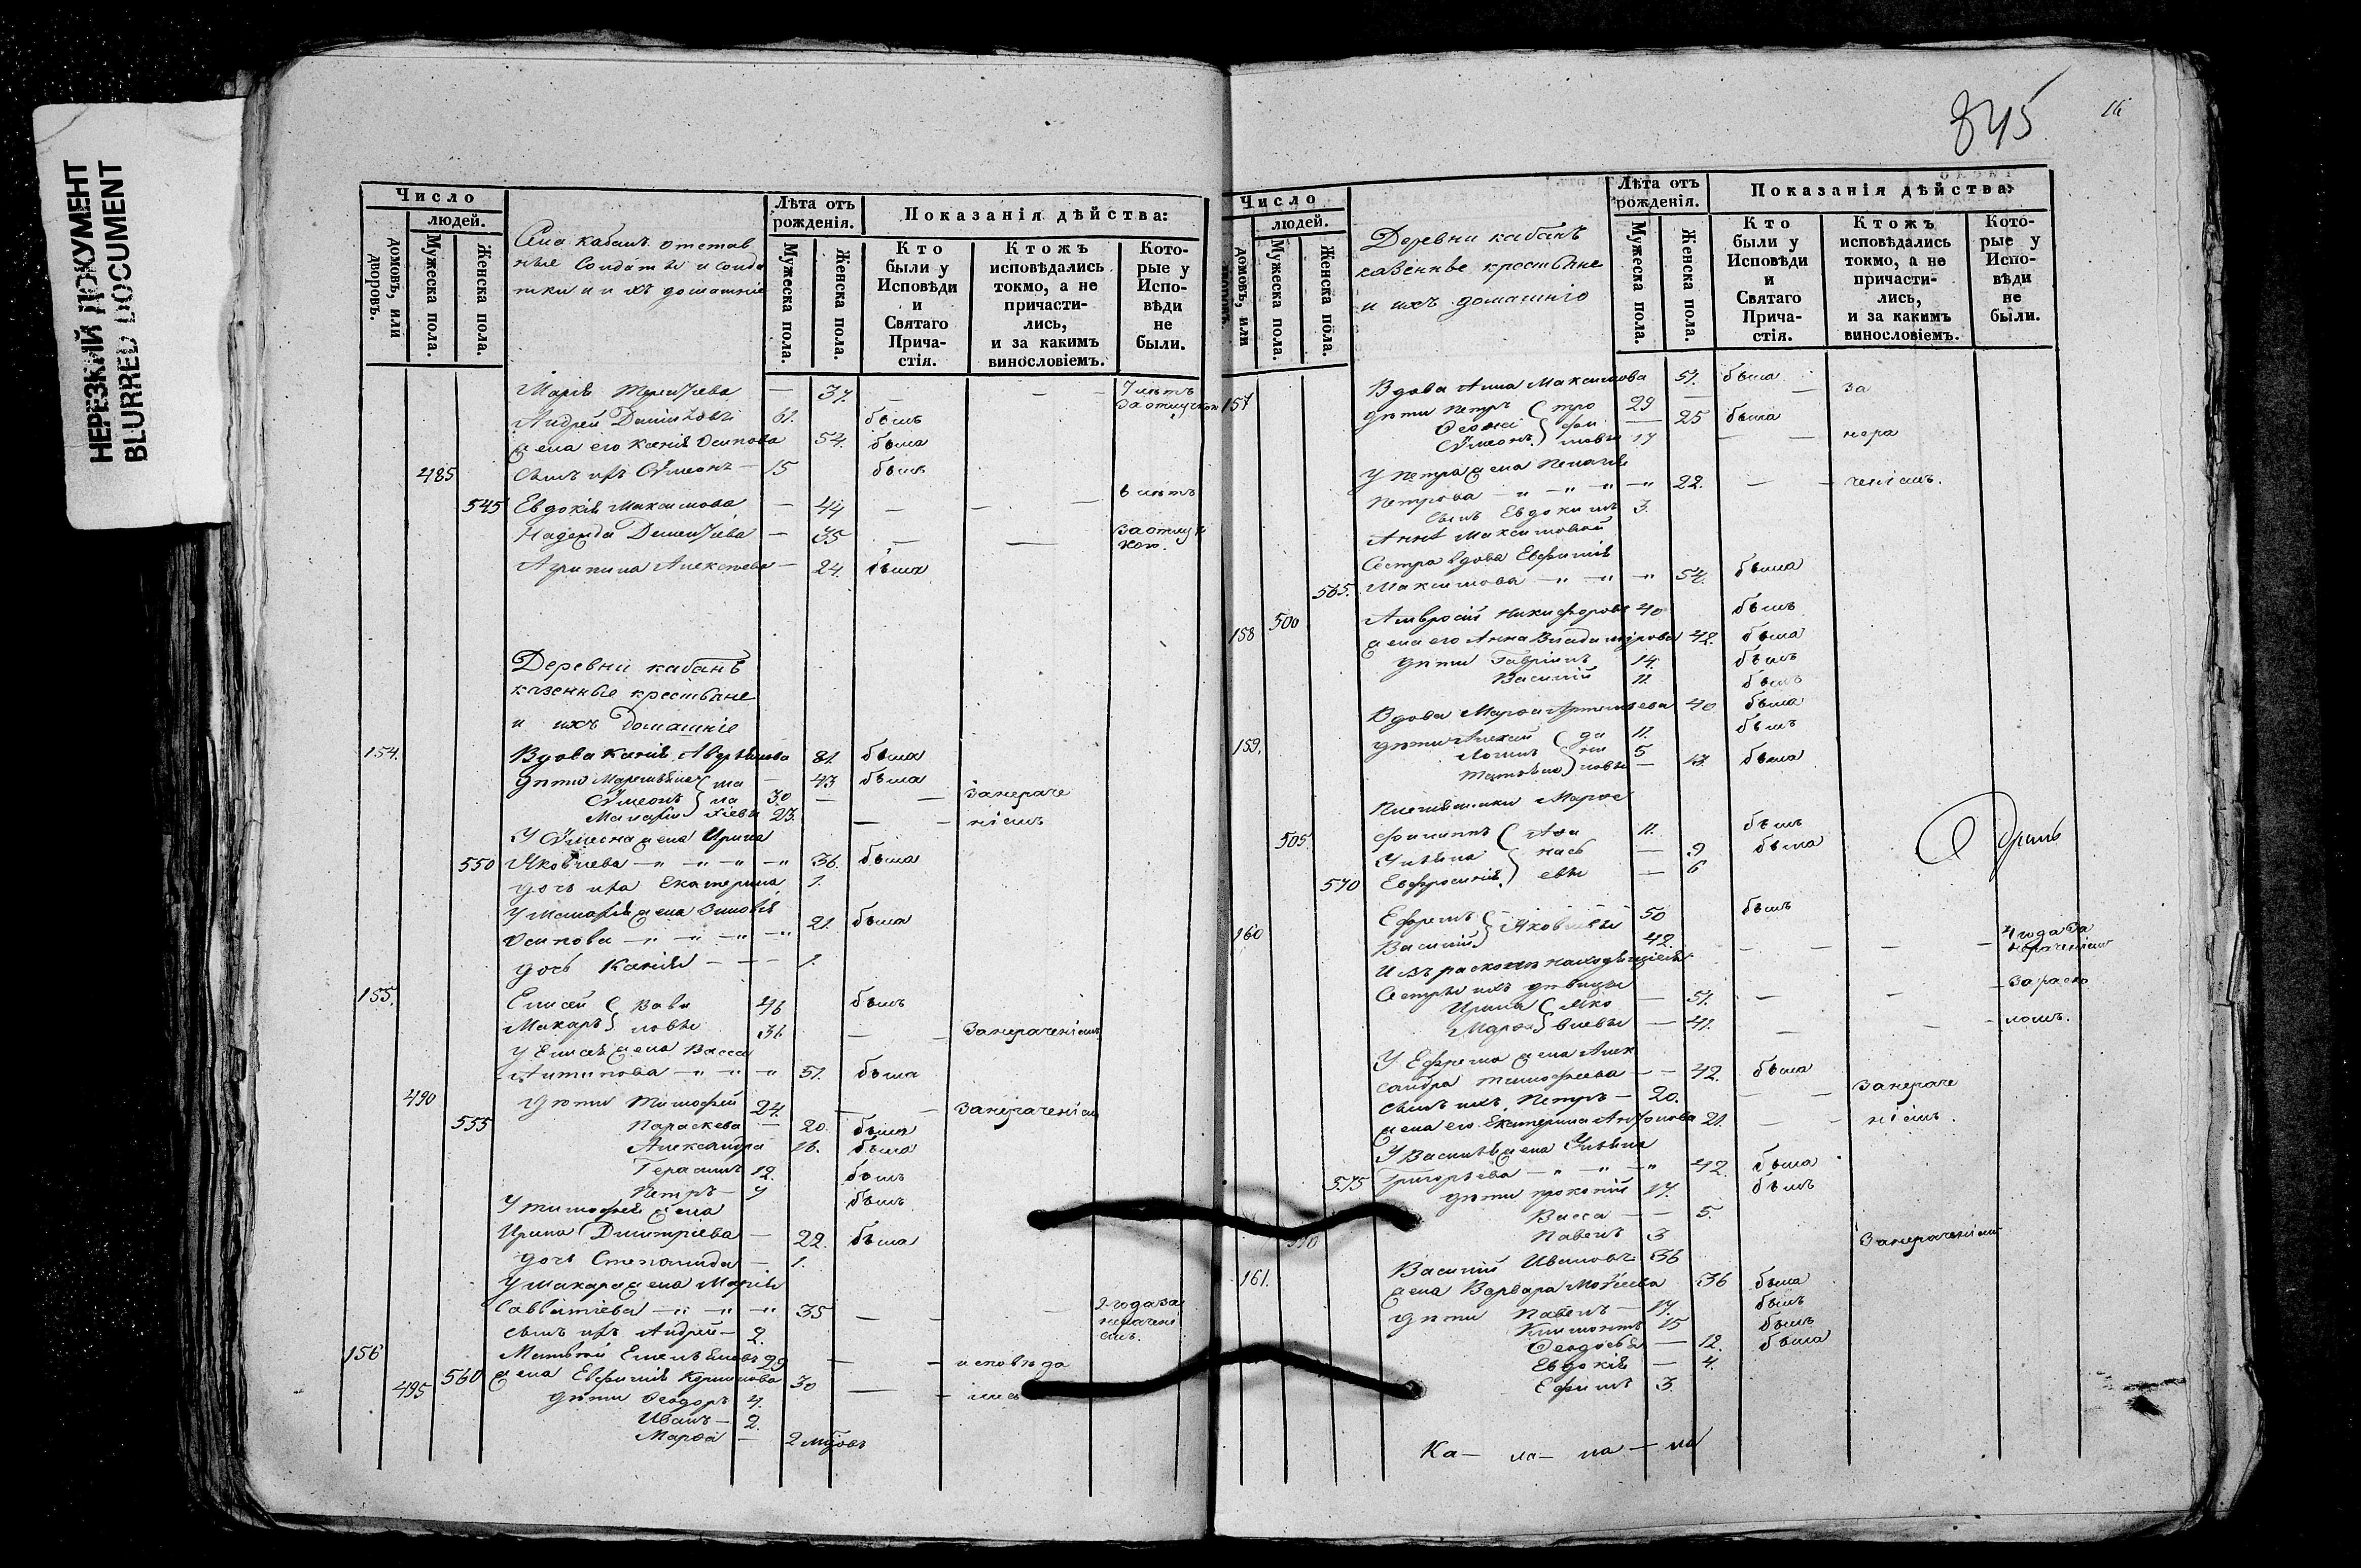 НЕРЕЗКИЙ ДОКУМЕНТ
BLURRED DOCUMENT
Число
людей.
домовъ, или дворовъ.
Мужеска пола.
Женска пола.
Села кабанъ отстав
ные Солдаты и солда
тки и ихъ домашніе
Лѣта отъ рожденія.
Мужеска пола.
Женска пола.
Показанія дѣйства:
Кто были у Исповѣди и Святаго Прича-стія.
Ктожъ исповѣдались токмо, а не причасти-лись, и за какимъ винословіемъ.
Кото-рые у Испо-вѣди не были.
Андрей 61. былъ
жена его Ксенія Осипова 54. была
485 сынъ ихъ Сѵмеонъ 15 былъ
545 Евдокія Максимова — 44 — — 6 лѣтъ
Надежда — 35 — — за отлуч
кою.
Агрипина Алексѣева — 24. была
Деревни кабанъ
казенные крестьяне
и ихъ домашніе
154. Вдова Ксенія 81. была
дѣти — 43 была
Сѵмеонъ 30 — — занераче
23. — — ніемъ
У Сѵмеона жена Ирина
550 Яковлева 36. была
дочь ихъ Екатерина 1.
жена Зиновія
Осипова 21. была
дочь Ксенія — 1.
155. Елисей Вави 46 былъ
Макаръ ловы 36. — — Занераченіемъ
У Елисея жена Васса
Антипова 51. была
490 дѣти Тимофей 24. — — Занераченіемъ
555 Параскева — 20. была
Александра 16. была
Герасимъ 12. былъ
Петръ 9 былъ
У Тимофея жена
Ирина Димитріева — 22. была
дочь Степанида — 1.
У Макара жена Марія
Савватіева 35 — — 2 года за
нерачені
емъ.
сынъ ихъ Андрей 2.
156 Матвѣй Емельяновъ 29 — — исповѣда
560 жена Евфимія 30 — — лись
495 дѣти Ѳеодоръ 4.
Иванъ 2.
Марѳа — 2
845
16
Число
людей.
домовъ, или
Мужеска пола.
Женска пола.
Деревни кабанъ
казенные крестьяне
и ихъ домашніе
Лѣта отъ рожденія.
Мужеска пола.
Женска пола.
Показанія дѣйства:
Кто были у Исповѣди и Святаго Прича-стія.
Ктожъ исповѣдались токмо, а не причасти-лись, и за какимъ винословіемъ.
Кото-рые у Испо-вѣди не были.
157 Вдова Анна Максимова 51. была
дѣти Петръ тро 29 — — за
фи — 25 была
Сѵмеонъ мовы 17 — — нера
У Петра жена Пелагія
Петрова 22. — — ченіемъ.
сынъ Евдокимъ 3.
Анны Максимовой
Сестра вдова Евфимія
565. Максимова 54. была
158 500 Амвросій Никифоровъ 40 былъ
жена его Анна Владимірова 42. была
дѣти Гавріилъ 14. былъ
Василій 11. былъ
Вдова Марѳа Артемьева 40 была
159. дѣти Алексій да 11. былъ
ни 5
Татьяна ловы — 13. была
Племянники Марѳы
505 Филиппъ Аѳа 11. былъ
Ульяна нась — 9 была
570 Евфросинія евы — 6
160 Ефремъ Яковлевы 50 былъ
Василій 42. — — 4 года за
нераченіемъ
Изъ раскола находящіеся
Сестры ихъ дѣвицы — за раско
Ирина Яко — 51. — —
Марѳа влевы — 41. — — ломъ.
У Ефрема жена Алек
сандра Тимофеева — 42. была
сынъ ихъ Петръ 20. — — занераче
жена его Екатерина 21. — — ніемъ.
У Василья жена Ульяна
575 Григорьева 42. была
дѣти Прокопій 17. былъ
Васса — 5.
510 Павелъ 3
161. Василій Ивановъ 36 Занераченіемъ
жена Варвара Моѵсеева 36 была
дѣти Павелъ 17. былъ
Климонтъ 15 былъ
Ѳеодосья — 12. была
Евдокія — 4.
Ефимъ 3.